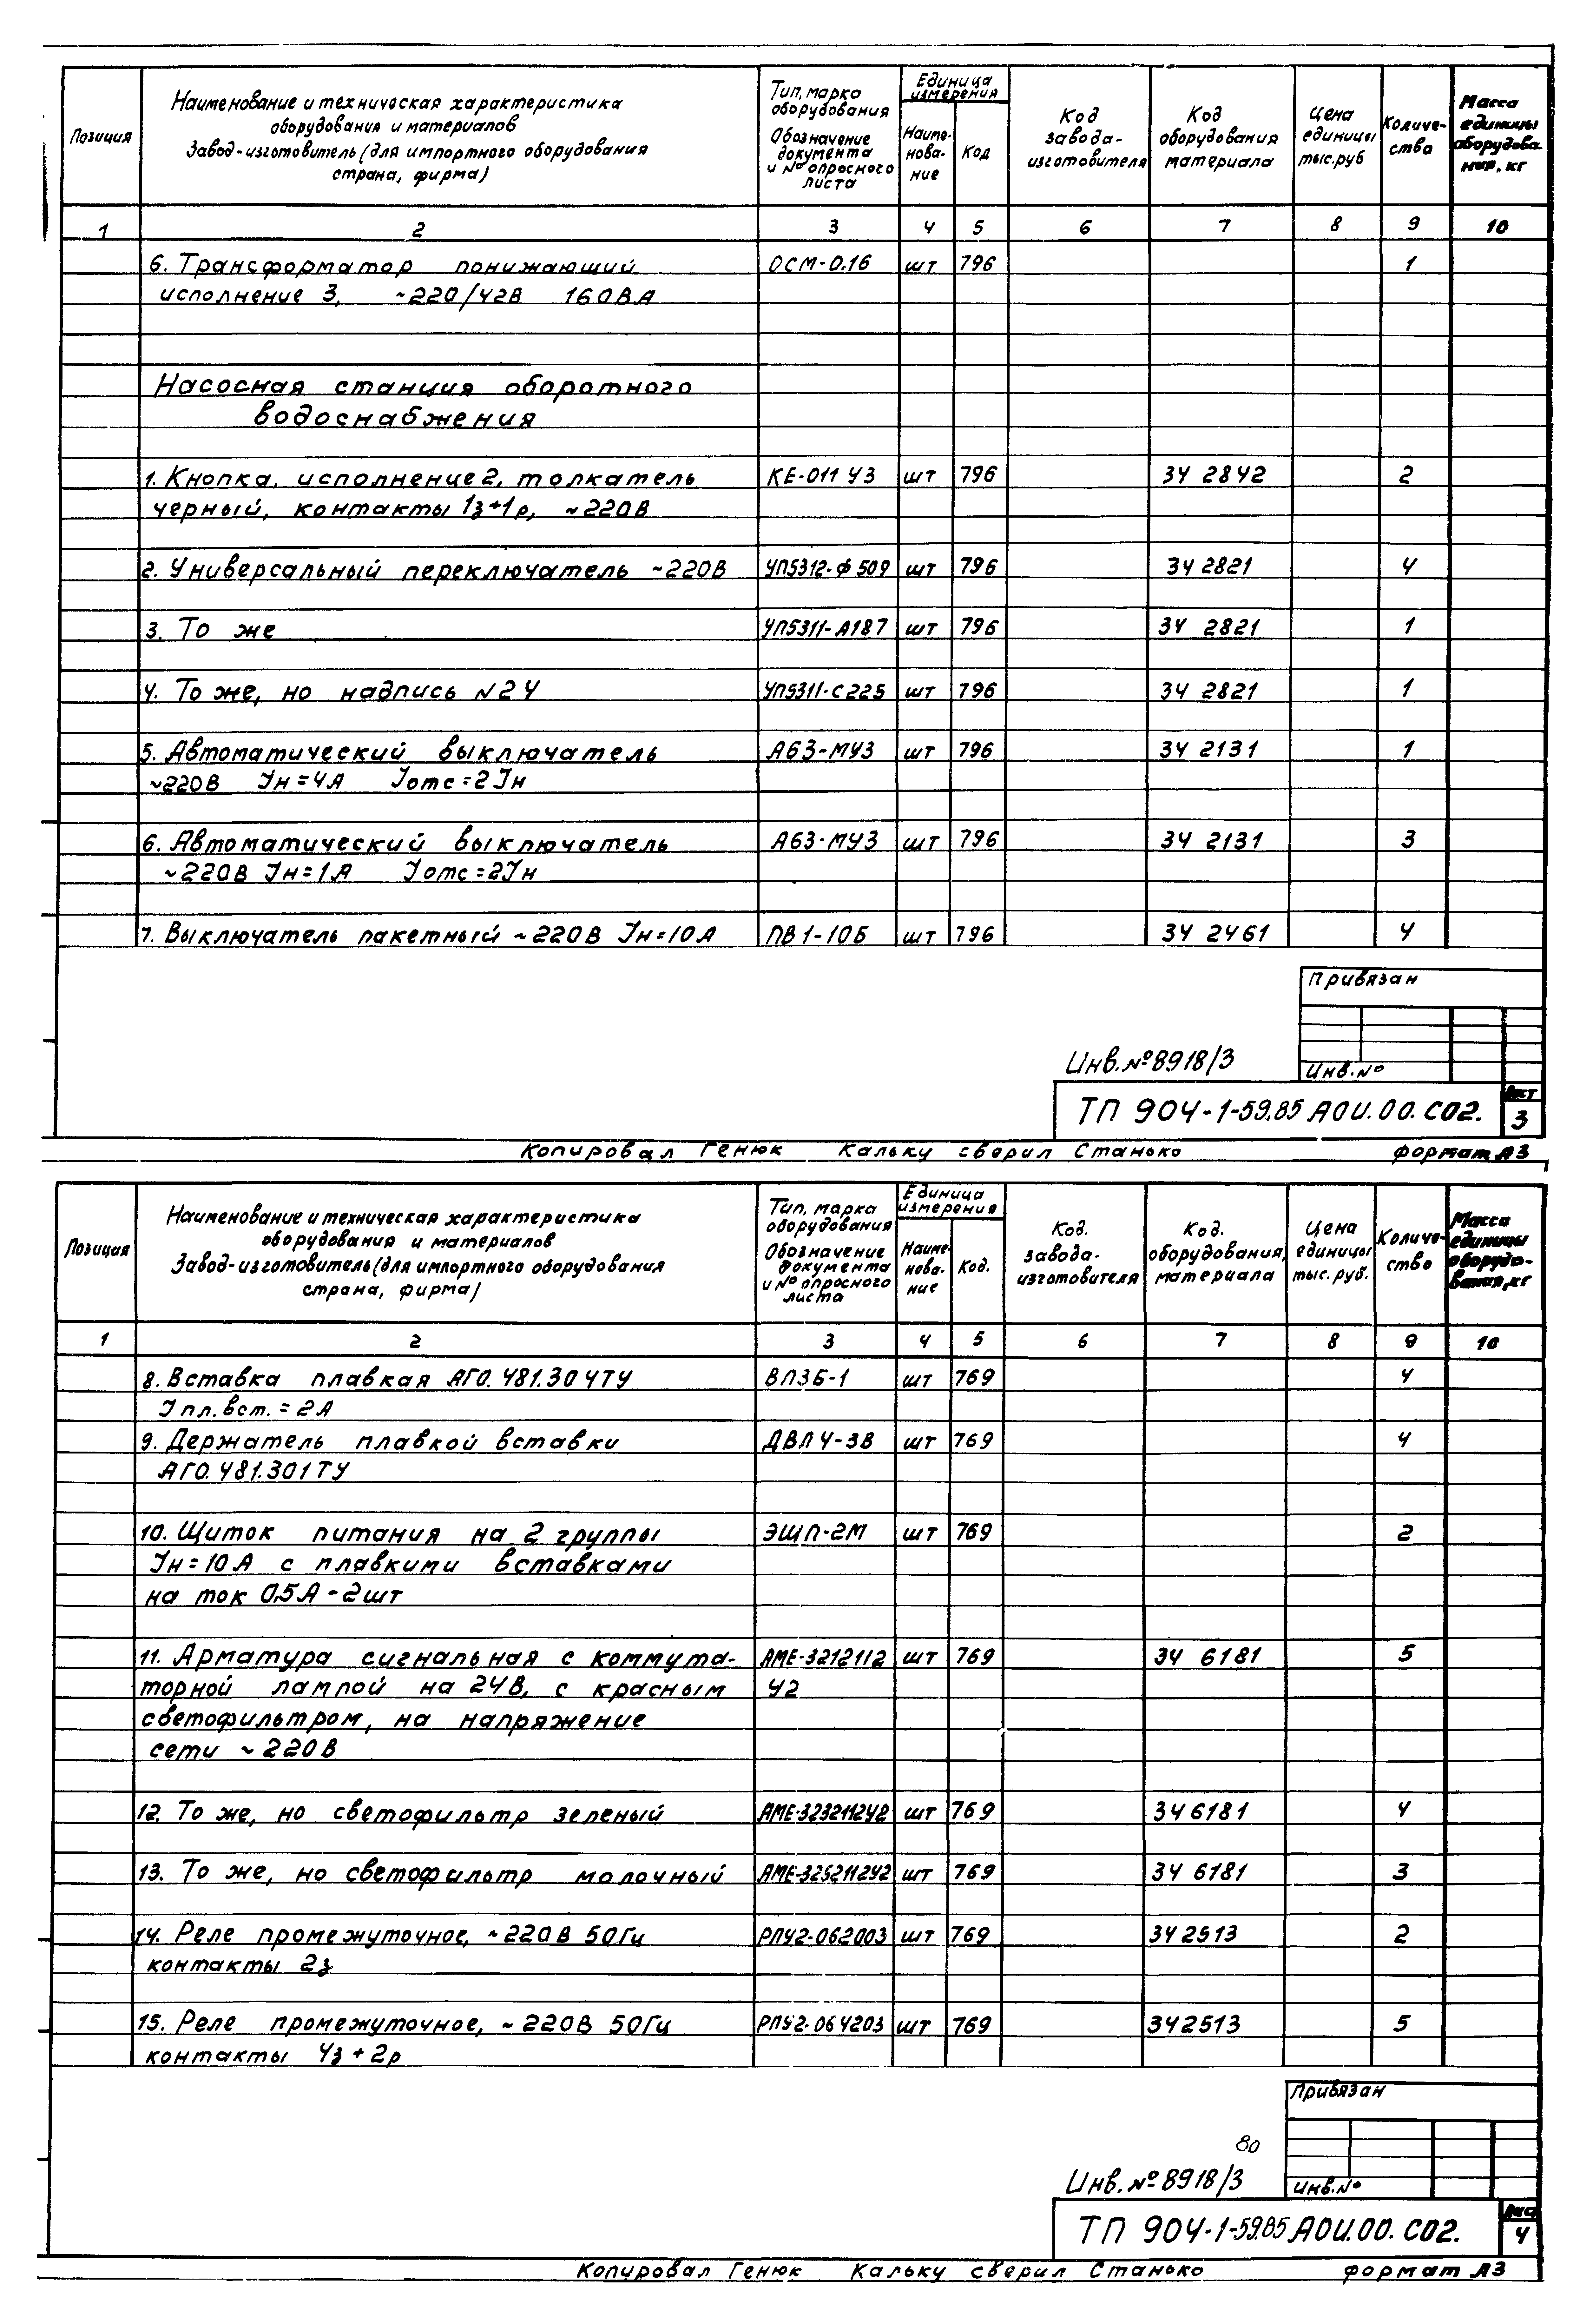 Позиция
Наименование и техническая характеристика
оборудования и материалов
Завод-изготовитель (для импортного оборудования
страна, фирма)
Тип, марка
оборудования
Обозначение
документа
и № опросного
листа
Единица
измерения
Наиме-
нова-
ние
Код
Код
завода-
изготовителя
Код
оборудования
материала
Цена
единицы
тыс.руб
Количе-
ство
Масса
единицы
оборудова-
ния, кг
1 2 3 4 5 6 7 8 9 10
6. Трансформатор понижающий ОСМ-0.16 шт 796 1
исполнение 3, ~220/42В 160ВА
Насосная станция оборотного
водоснабжения
1. Кнопка, исполнение 2, толкатель КЕ-011 У3 шт 796 34 2842 2
черный, контакты 1з+1р, ~220В
2. Универсальный переключатель ~220В УП5312-Ф509 шт 796 34 2821 4
3. То же УП5311-А187 шт 796 34 2821 1
4. То же, но надпись №24 УП5311-С225 шт 796 34 2821 1
5. Автоматический выключатель А63-МУ3 шт 796 34 2131 1
~220В Iн=4А Iотс=2Iн
6. Автоматический выключатель А63-МУ3 шт 796 34 2131 3
~220В Iн=1А Iотс=2Iн
7. Выключатель пакетный ~220В Iн=10А ПВ1-10Б шт 796 34 2461 4
Привязан
Инв.№8918/3
Инв.№
ТП 904-1-59.85 АОИ.00.СО2.
Лист
3
Копировал Генюк Кальку сверил Станько формат А3
Позиция
Наименование и техническая характеристика
оборудования и материалов
Завод-изготовитель (для импортного оборудования
страна, фирма)
Тип, марка
оборудования
Обозначение
документа
и № опросного
листа
Единица
измерения
Наиме-
нова-
ние
Код.
Код.
завода-
изготовителя
Код.
оборудования,
материала
Цена
единицы
тыс. руб.
Количе-
ство
Масса
единицы
оборудо-
вания,кг
1 2 3 4 5 6 7 8 9 10
8. Вставка плавкая АГО.481.304ТУ ВП3Б-1 шт 769 4
Iпл.вст.=2А
9. Держатель плавкой вставки ДВП4-3В шт 769 4
АГО.481.301ТУ
10. Щиток питания на 2 группы ЭЩП-2М шт 769 2
Iн=10А с плавкими вставками
на ток 0,5А-2шт
11. Арматура сигнальная с коммута- АМЕ-3212112 шт 769 34 6181 5
торной лампой на 24В, с красным У2
светофильтром, на напряжение
сети ~220В
12. То же, но светофильтр зеленый АМЕ-3232112У2 шт 769 34 6181 4
13. То же, но светофильтр молочный АМЕ-3252112У2 шт 769 34 6181 3
14. Реле промежуточное, ~220В 50Гц РПУ2-062003 шт 769 342513 2
контакты 2з
15. Реле промежуточное, ~220В 50Гц РПУ2-064203 шт 769 342513 5
контакты 4з+2р
Привязан
80
Инв.№8918/3
Инв.№
ТП 904-1-59.85 АОИ.00.СО2.
Лист
4
Копировал Генюк Кальку сверил Станько формат А3